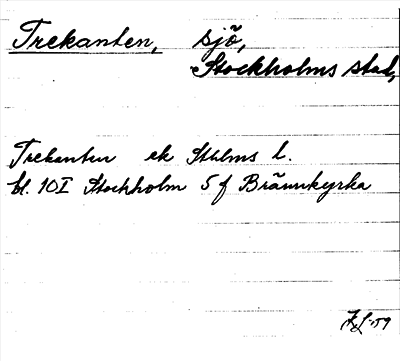 Trekanten, sjö,
Stockholms stad,
Trekanten ek Sthlms l.
bl. 10I Stockholm 5 f Brännkyrka